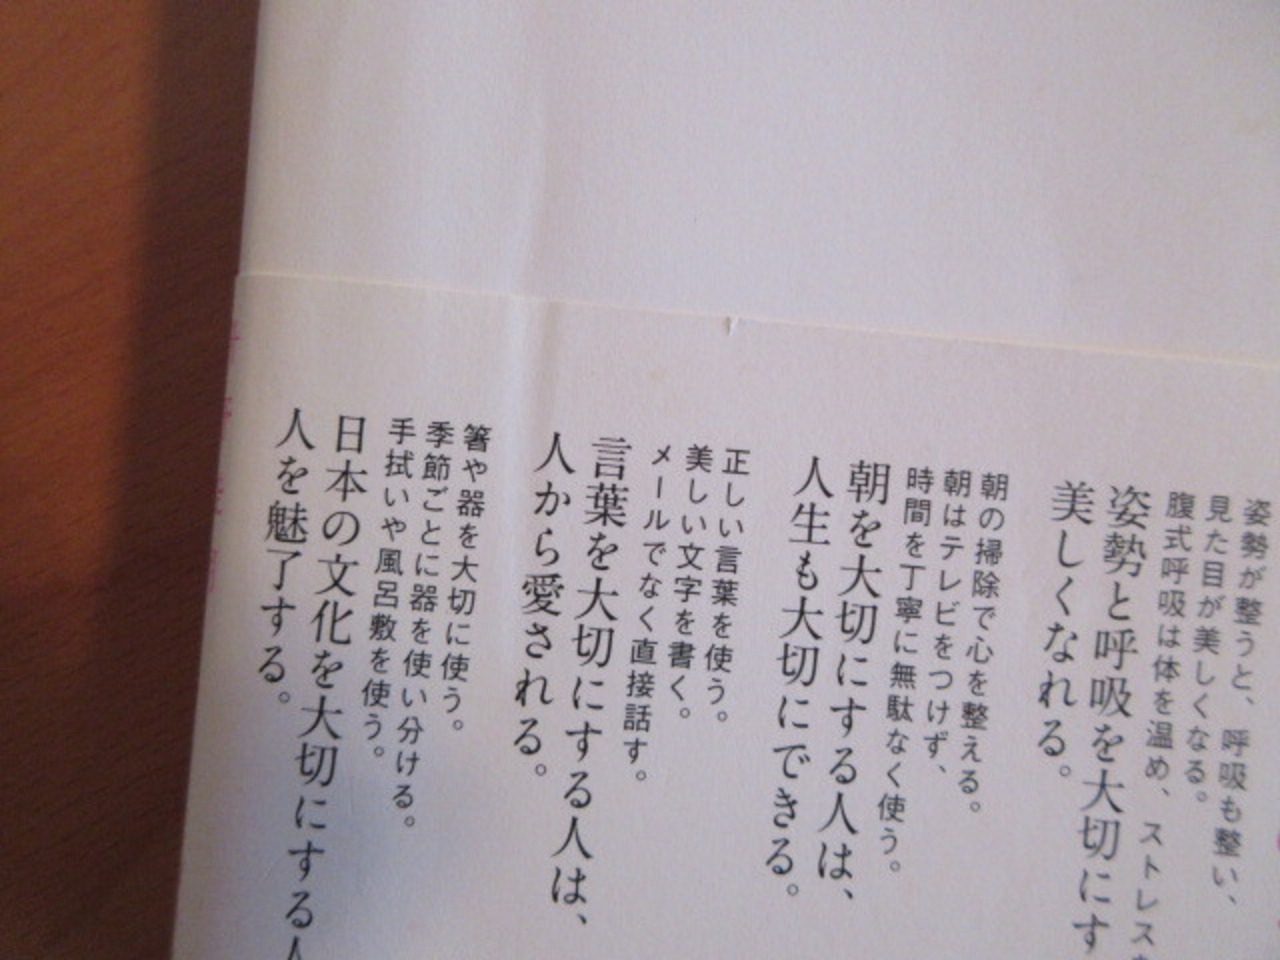 姿勢が整うと、呼吸も整い、
見た目が美しくなる。
腹式呼吸は体を温め、ストレス
姿勢と呼吸を大切にす
美しくなれる。
朝の掃除で心を整える。
朝はテレビをつけず、
時間を丁寧に無駄なく使う。
朝を大切にする人は、
人生も大切にできる。
正しい言葉を使う。
美しい文字を書く。
メールでなく直接話す。
言葉を大切にする人は、
人から愛される。
箸や器を大切に使う。
季節ごとに器を使い分ける。
手拭いや風呂敷を使う。
日本の文化を大切にする人
人を魅了する。